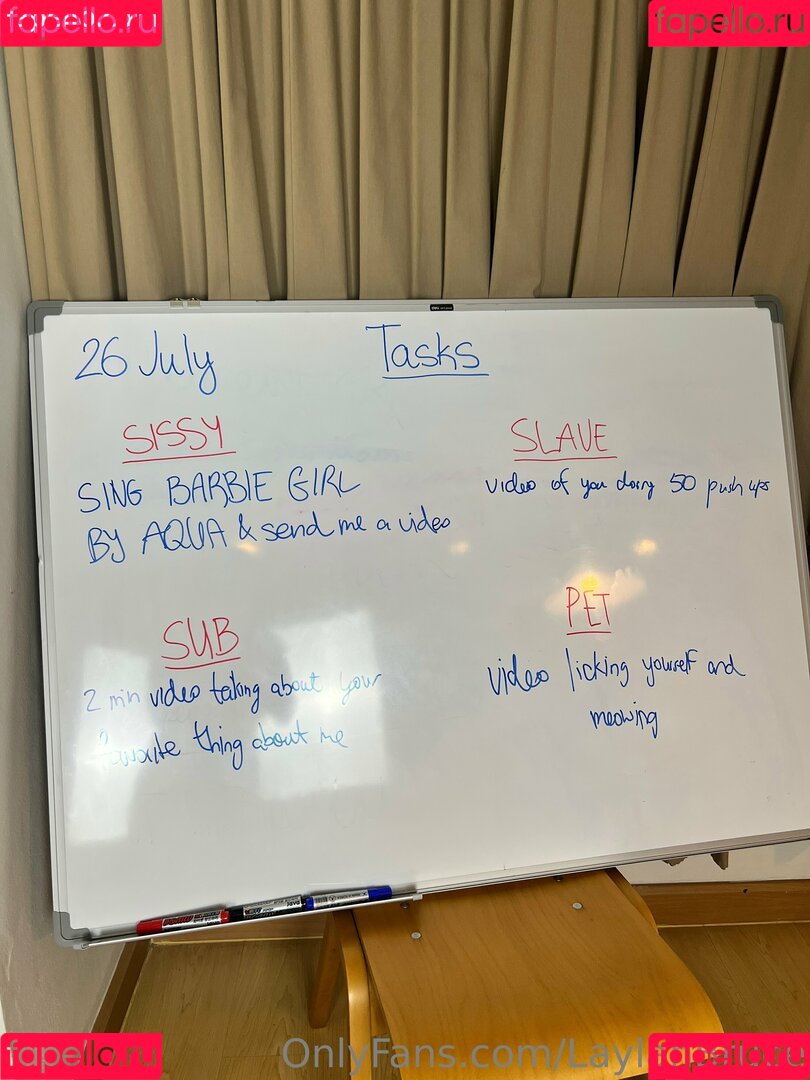 fapello.ru
fapello.ru
26 July
Tasks
SISSY
SING BARBIE GIRL
BY AQUA & send me a video
SLAVE
video of you doing 50 push ups
SUB
2 min video talking about your
favourite thing about me
PET
video licking yourself and
meowing
fapello.ru
OnlyFans.com/Layl
fapello.ru